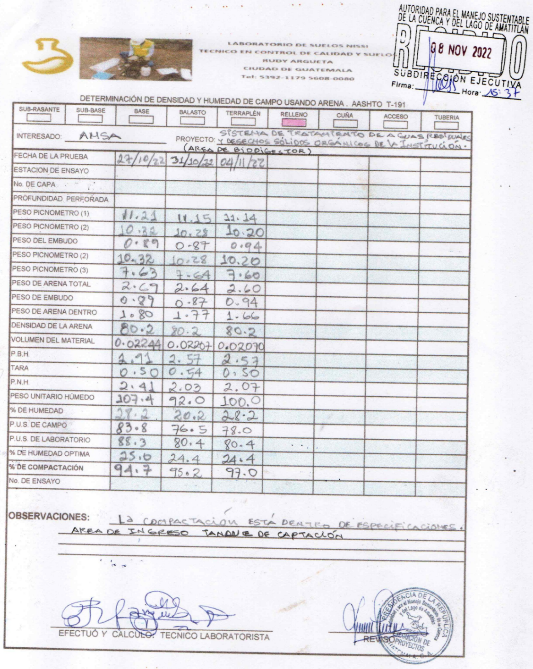 AUTORIDAD PARA EL MANEJO SUSTENTABLE
DE LA CUENCA Y DEL LAGO DE AMATITLÁN
RECIBIDO
08 NOV 2022
SUBDIRECCIÓN EJECUTIVA
Firma: Hora: 15:37
LABORATORIO DE SUELOS NISSI
TECNICO EN CONTROL DE CALIDAD Y SUELO
RUDY ARGUETA
CIUDAD DE GUATEMALA
Tel: 5392-1179 5608-0080
DETERMINACIÓN DE DENSIDAD Y HUMEDAD DE CAMPO USANDO ARENA . AASHTO T-191
SUB-RASANTE SUB-BASE BASE BALASTO TERRAPLÉN RELLENO CUÑA ACCESO TUBERIA
INTERESADO: AMSA PROYECTO: SISTEMA DE TRATAMIENTO DE AGUAS RESIDUALES
Y DESECHOS SÓLIDOS ORGÁNICOS DE LA INSTITUCIÓN.
(AREA DE BIODIGESTOR)
FECHA DE LA PRUEBA 27/10/22 31/10/22 04/11/22
ESTACIÓN DE ENSAYO
No. DE CAPA
PROFUNDIDAD PERFORADA
PESO PICNOMETRO (1) 11.21 11.15 11.14
PESO PICNOMETRO (2) 10.32 10.28 10.20
PESO DEL EMBUDO 0.89 0.87 0.94
PESO PICNOMETRO (2) 10.32 10.28 10.20
PESO PICNOMETRO (3) 7.63 7.64 7.60
PESO DE ARENA TOTAL 2.69 2.64 2.60
PESO DE EMBUDO 0.89 0.87 0.94
PESO DE ARENA DENTRO 1.80 1.77 1.66
DENSIDAD DE LA ARENA 80.2 80.2 80.2
VOLUMEN DEL MATERIAL 0.02244 0.02207 0.02070
P.B.H 2.91 2.57 2.57
TARA 0.50 0.54 0.50
P.N.H 2.41 2.03 2.07
PESO UNITARIO HÚMEDO 107.4 92.0 100.0
% DE HUMEDAD 28.2 20.2 28.2
P.U.S DE CAMPO 83.8 76.5 78.0
P.U.S. DE LABORATORIO 88.3 80.4 80.4
% DE HUMEDAD OPTIMA 25.0 24.4 24.4
% DE COMPACTACIÓN 94.7 95.2 97.0
No. DE ENSAYO
OBSERVACIONES: LA COMPACTACIÓN ESTÁ DENTRO DE ESPECIFICACIONES.
AREA DE INGRESO TANQUE DE CAPTACIÓN
EFECTUÓ Y CALCULÓ: TECNICO LABORATORISTA
REVISÓ
PRESIDENCIA DE LA REPUBLICA